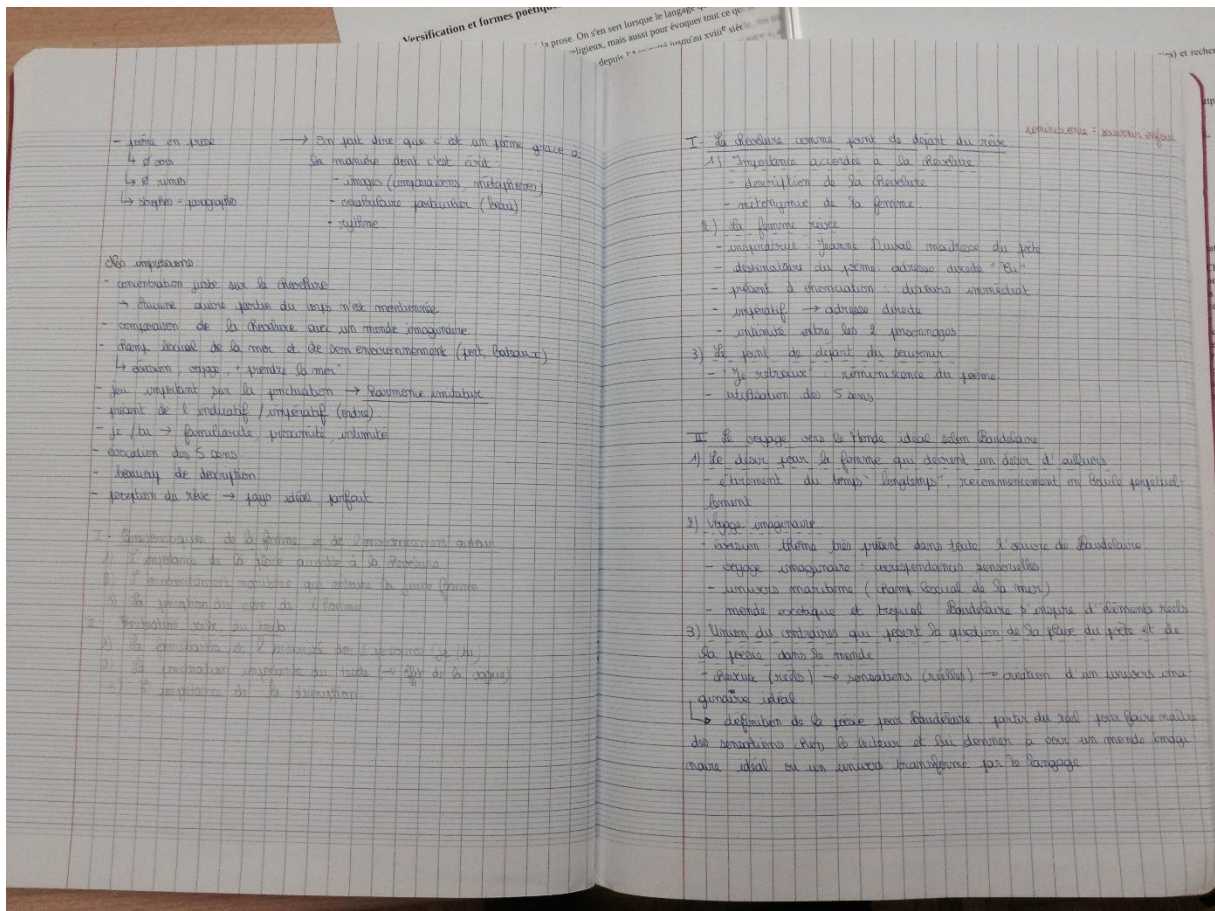 Versification et formes poétiqu
la prose. On s'en sert lorsque le langage q
religieux, mais aussi pour évoquer tout ce qu
depuis l'Antiquité jusqu'au XVIIIe siècle
es) et recher
- poème en prose → On peut dire que c'est un poème grâce à
↳ ∅ vers la manière dont c'est écrit
↳ ∅ rimes - images (comparaisons, métaphores)
↳ strophes = paragraphes - vocabulaire particulier (beau)
- rythme
Mes impressions
- concentration juste sur la chevelure
→ Aucune autre partie du corps n'est mentionnée
- comparaison de la chevelure avec un monde imaginaire
- champ lexical de la mer et de son environnement (port, bateaux)
↳ évasion, voyage, "prendre la mer"
- jeu important sur la ponctuation → harmonie imitative
- présent de l'indicatif / impératif (ordre)
- je / tu → familiarité, proximité, intimité
- évocation des 5 sens
- beaucoup de description
- perception du rêve → pays idéal, parfait
I - Caractéristiques de la femme et de l'environnement autour
1)
2) L'environnement que la femme
3) La
2
1) La de l' des 2 (je / tu)
2) La ponctuation importante du texte (→ effet de la vague)
3) L'importance de la description
réminiscence = souvenir enfoui
I - La chevelure comme point de départ du rêve
1) Importance accordée à la chevelure
- description de la chevelure
- métonymie de la femme
2) La femme rêvée
- inspiratrice : Jeanne Duval maîtresse du poète
- destinataire du poème : adresse directe "tu"
- présent d'énonciation : discours immédiat
- impératif → adresse directe
- intimité entre les 2 personnages
3) Le point de départ du souvenir
- "Je retrouve" : réminiscence du poème
- utilisation des 5 sens
II - Le voyage vers le Monde idéal selon Baudelaire
1) Le désir pour la femme qui devient un désir d'ailleurs
- étirement du temps "longtemps", recommencement en boucle perpétuel
lement
2) Voyage imaginaire
- évasion : thème très présent dans toute l'œuvre de Baudelaire
- voyage imaginaire : correspondances sensorielles
- univers maritime (champ lexical de la mer)
- monde exotique et tropical : Baudelaire s'inspire d'éléments réels
3) Union du contraires qui posent la question de la place du poète et de
la poésie dans le monde
- cheveux (réels) → sensations (réelles) → création d'un univers ima
ginaire idéal
↳ définition de la poésie pour Baudelaire : partir du réel pour faire naître
des sensations chez le lecteur et lui donner à voir un monde imagi
naire idéal ou un univers transformé par le langage